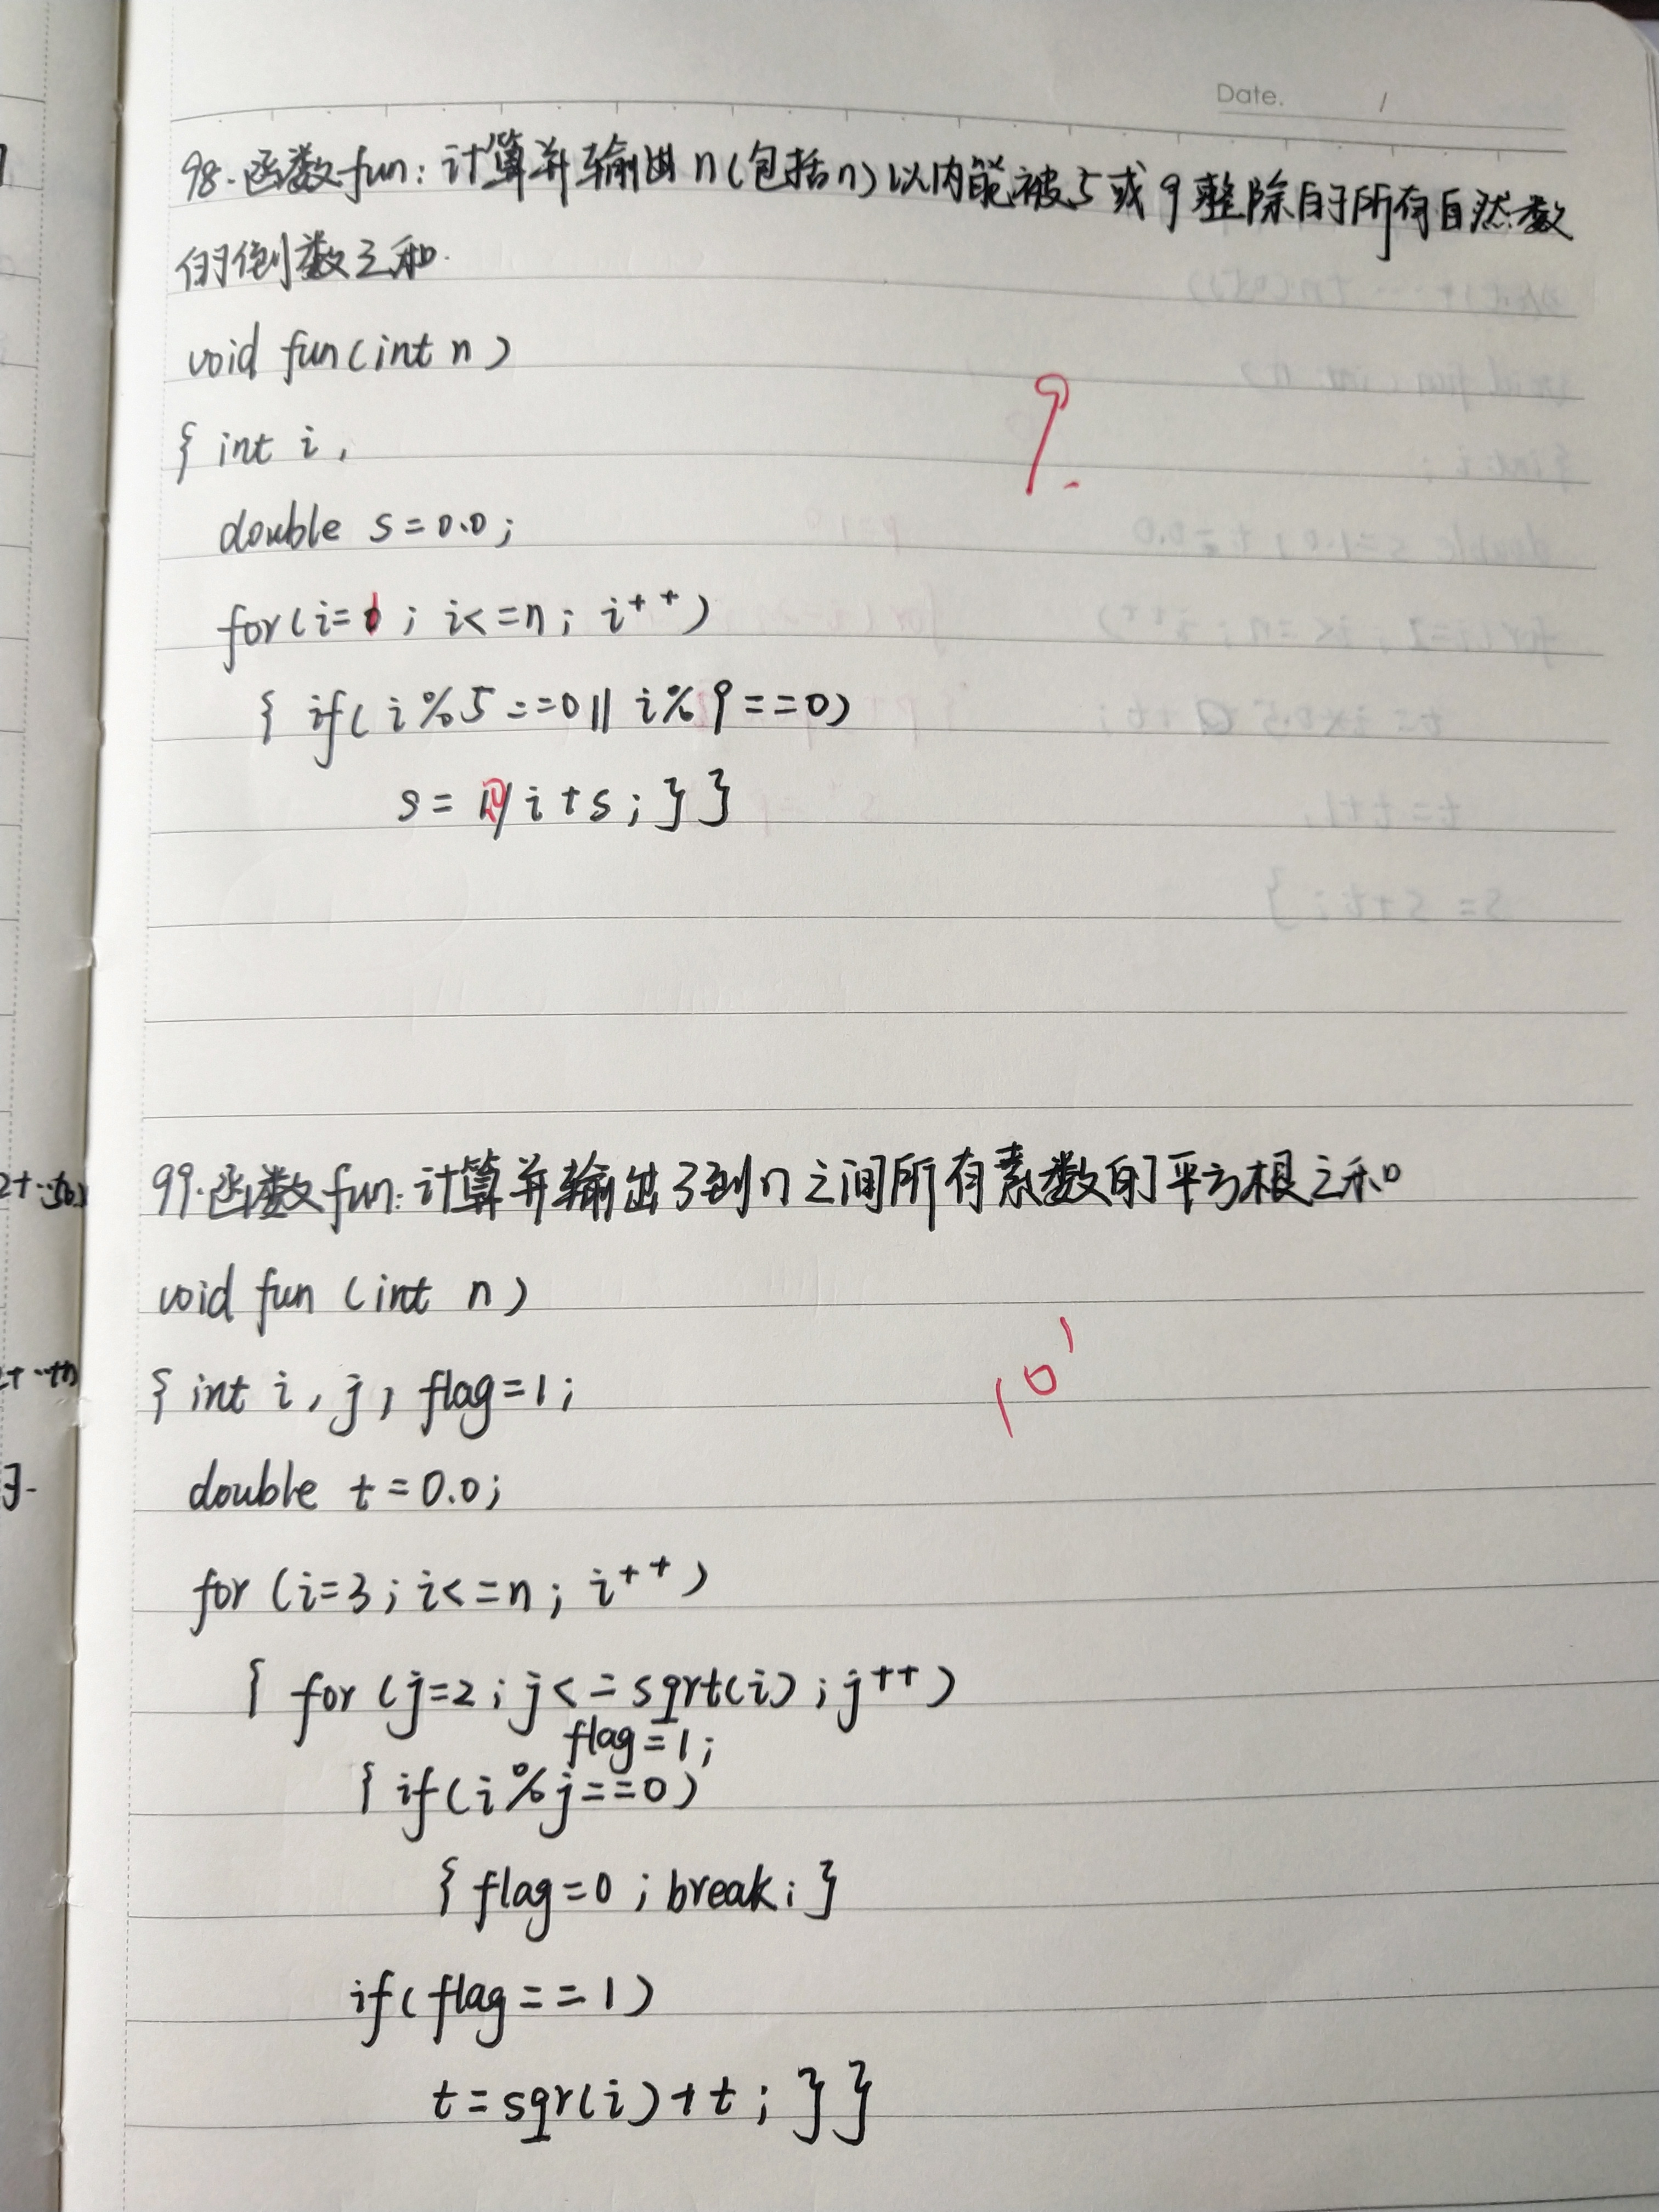 Date. /
98.函数fun:计算并输出n(包括n)以内能被5或9整除的所有自然数
的倒数之和.
void fun(int n)
{ int i,
9.
double s=0.0;
for(i=1; i<=n; i++)
{ if(i%5==0||i%9==0)
s= /i+s;}}
99.函数fun:计算并输出3到n之间所有素数的平方根之和。
void fun (int n)
{ int i, j, flag=1;
10'
double t=0.0;
for (i=3; i<=n; i++)
{ for (j=2; j<=sqrt(i); j++)
flag=1;
{ if(i%j==0)
{ flag=0; break; }
if(flag==1)
t=sqr(i)+t; }}